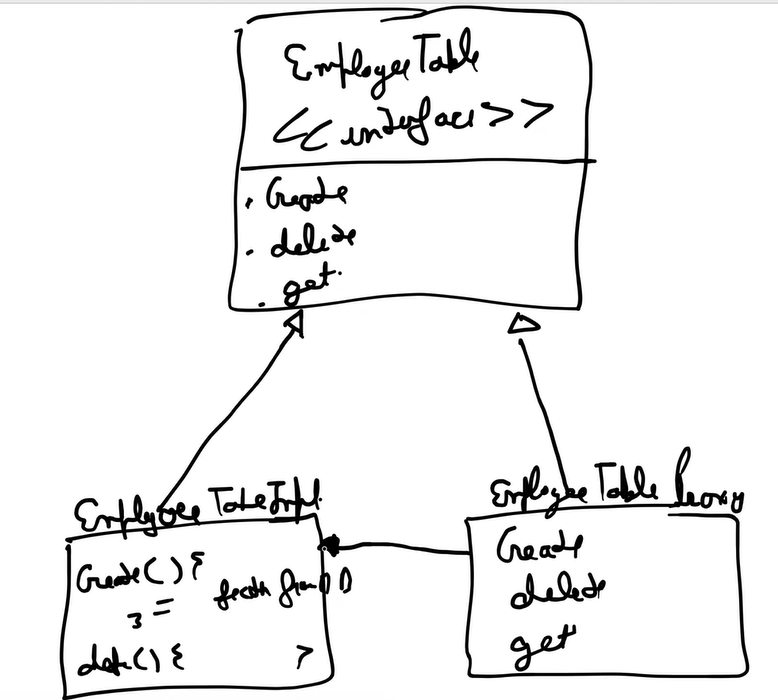 EmployeeTable
<<interface>>
. Create
. delete
. get.
Employee TableImpl.
Create() {
}
delete() { }
Employee Table Proxy
Create
delete
get